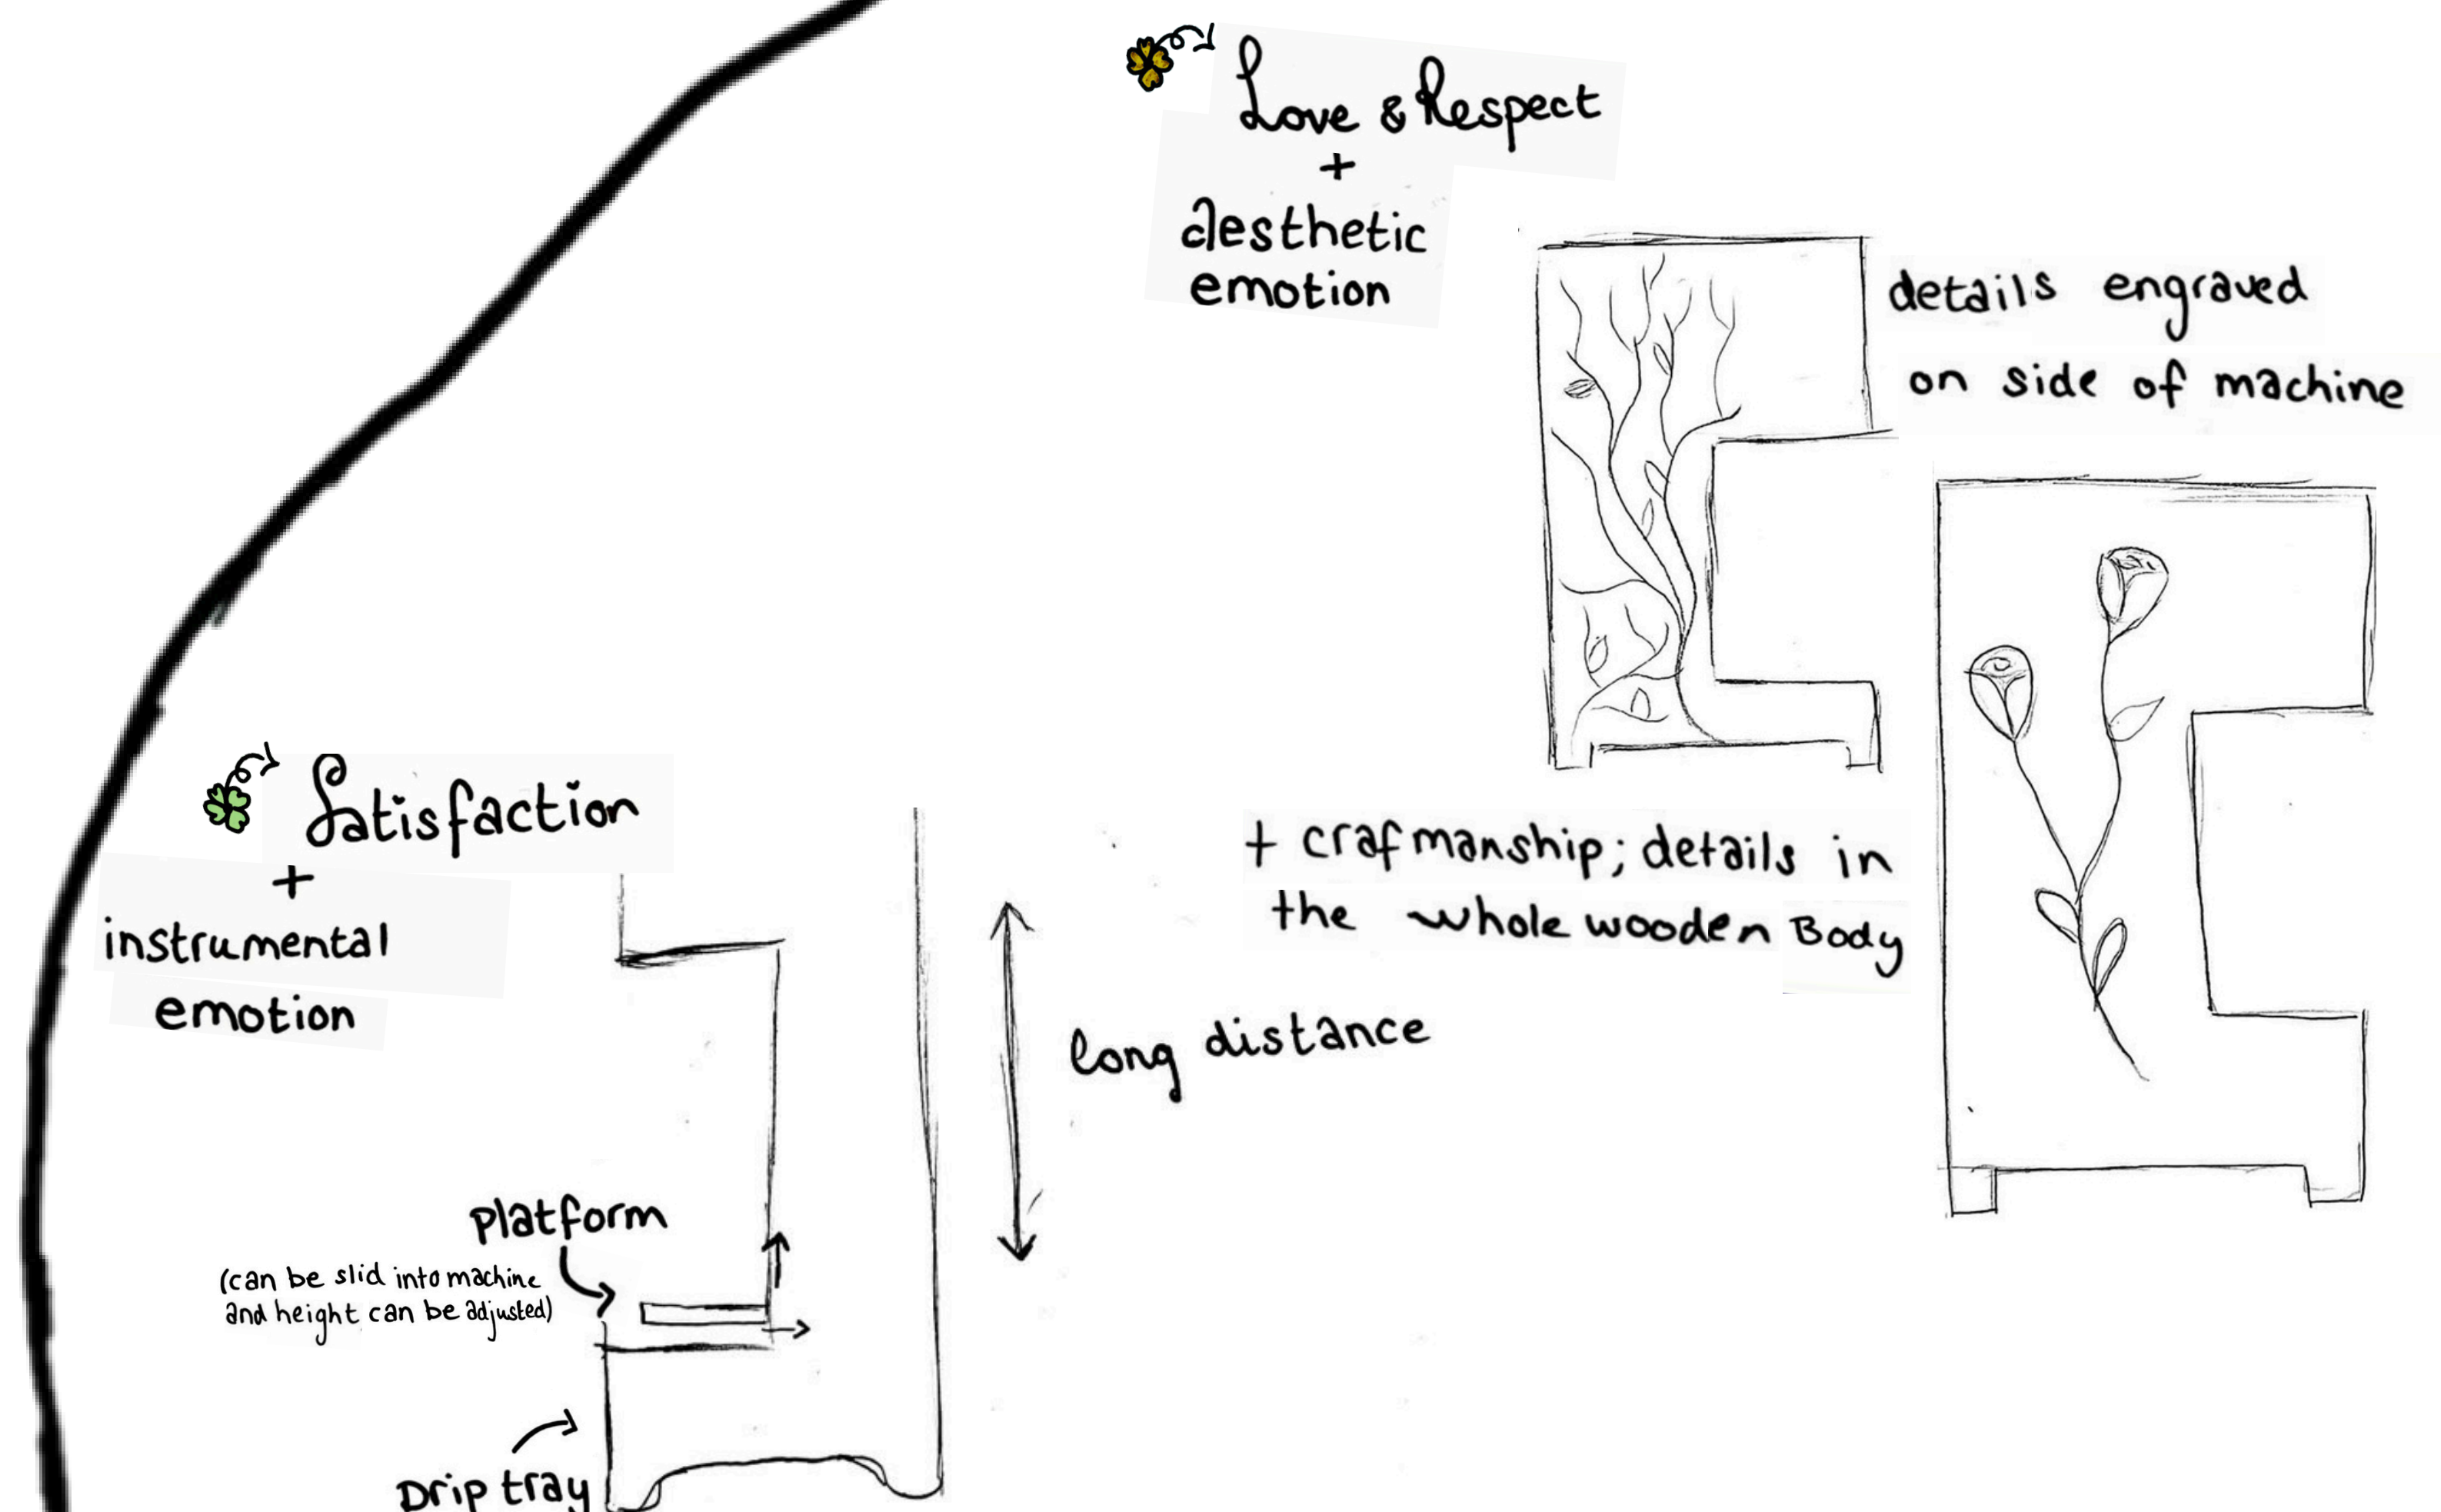 Love & Respect
+
aesthetic
emotion
details engraved
on side of machine
+ crafmanship; details in
the whole wooden Body
Satisfaction
+
instrumental
emotion
long distance
Platform
(can be slid into machine
and height can be adjusted)
Drip tray